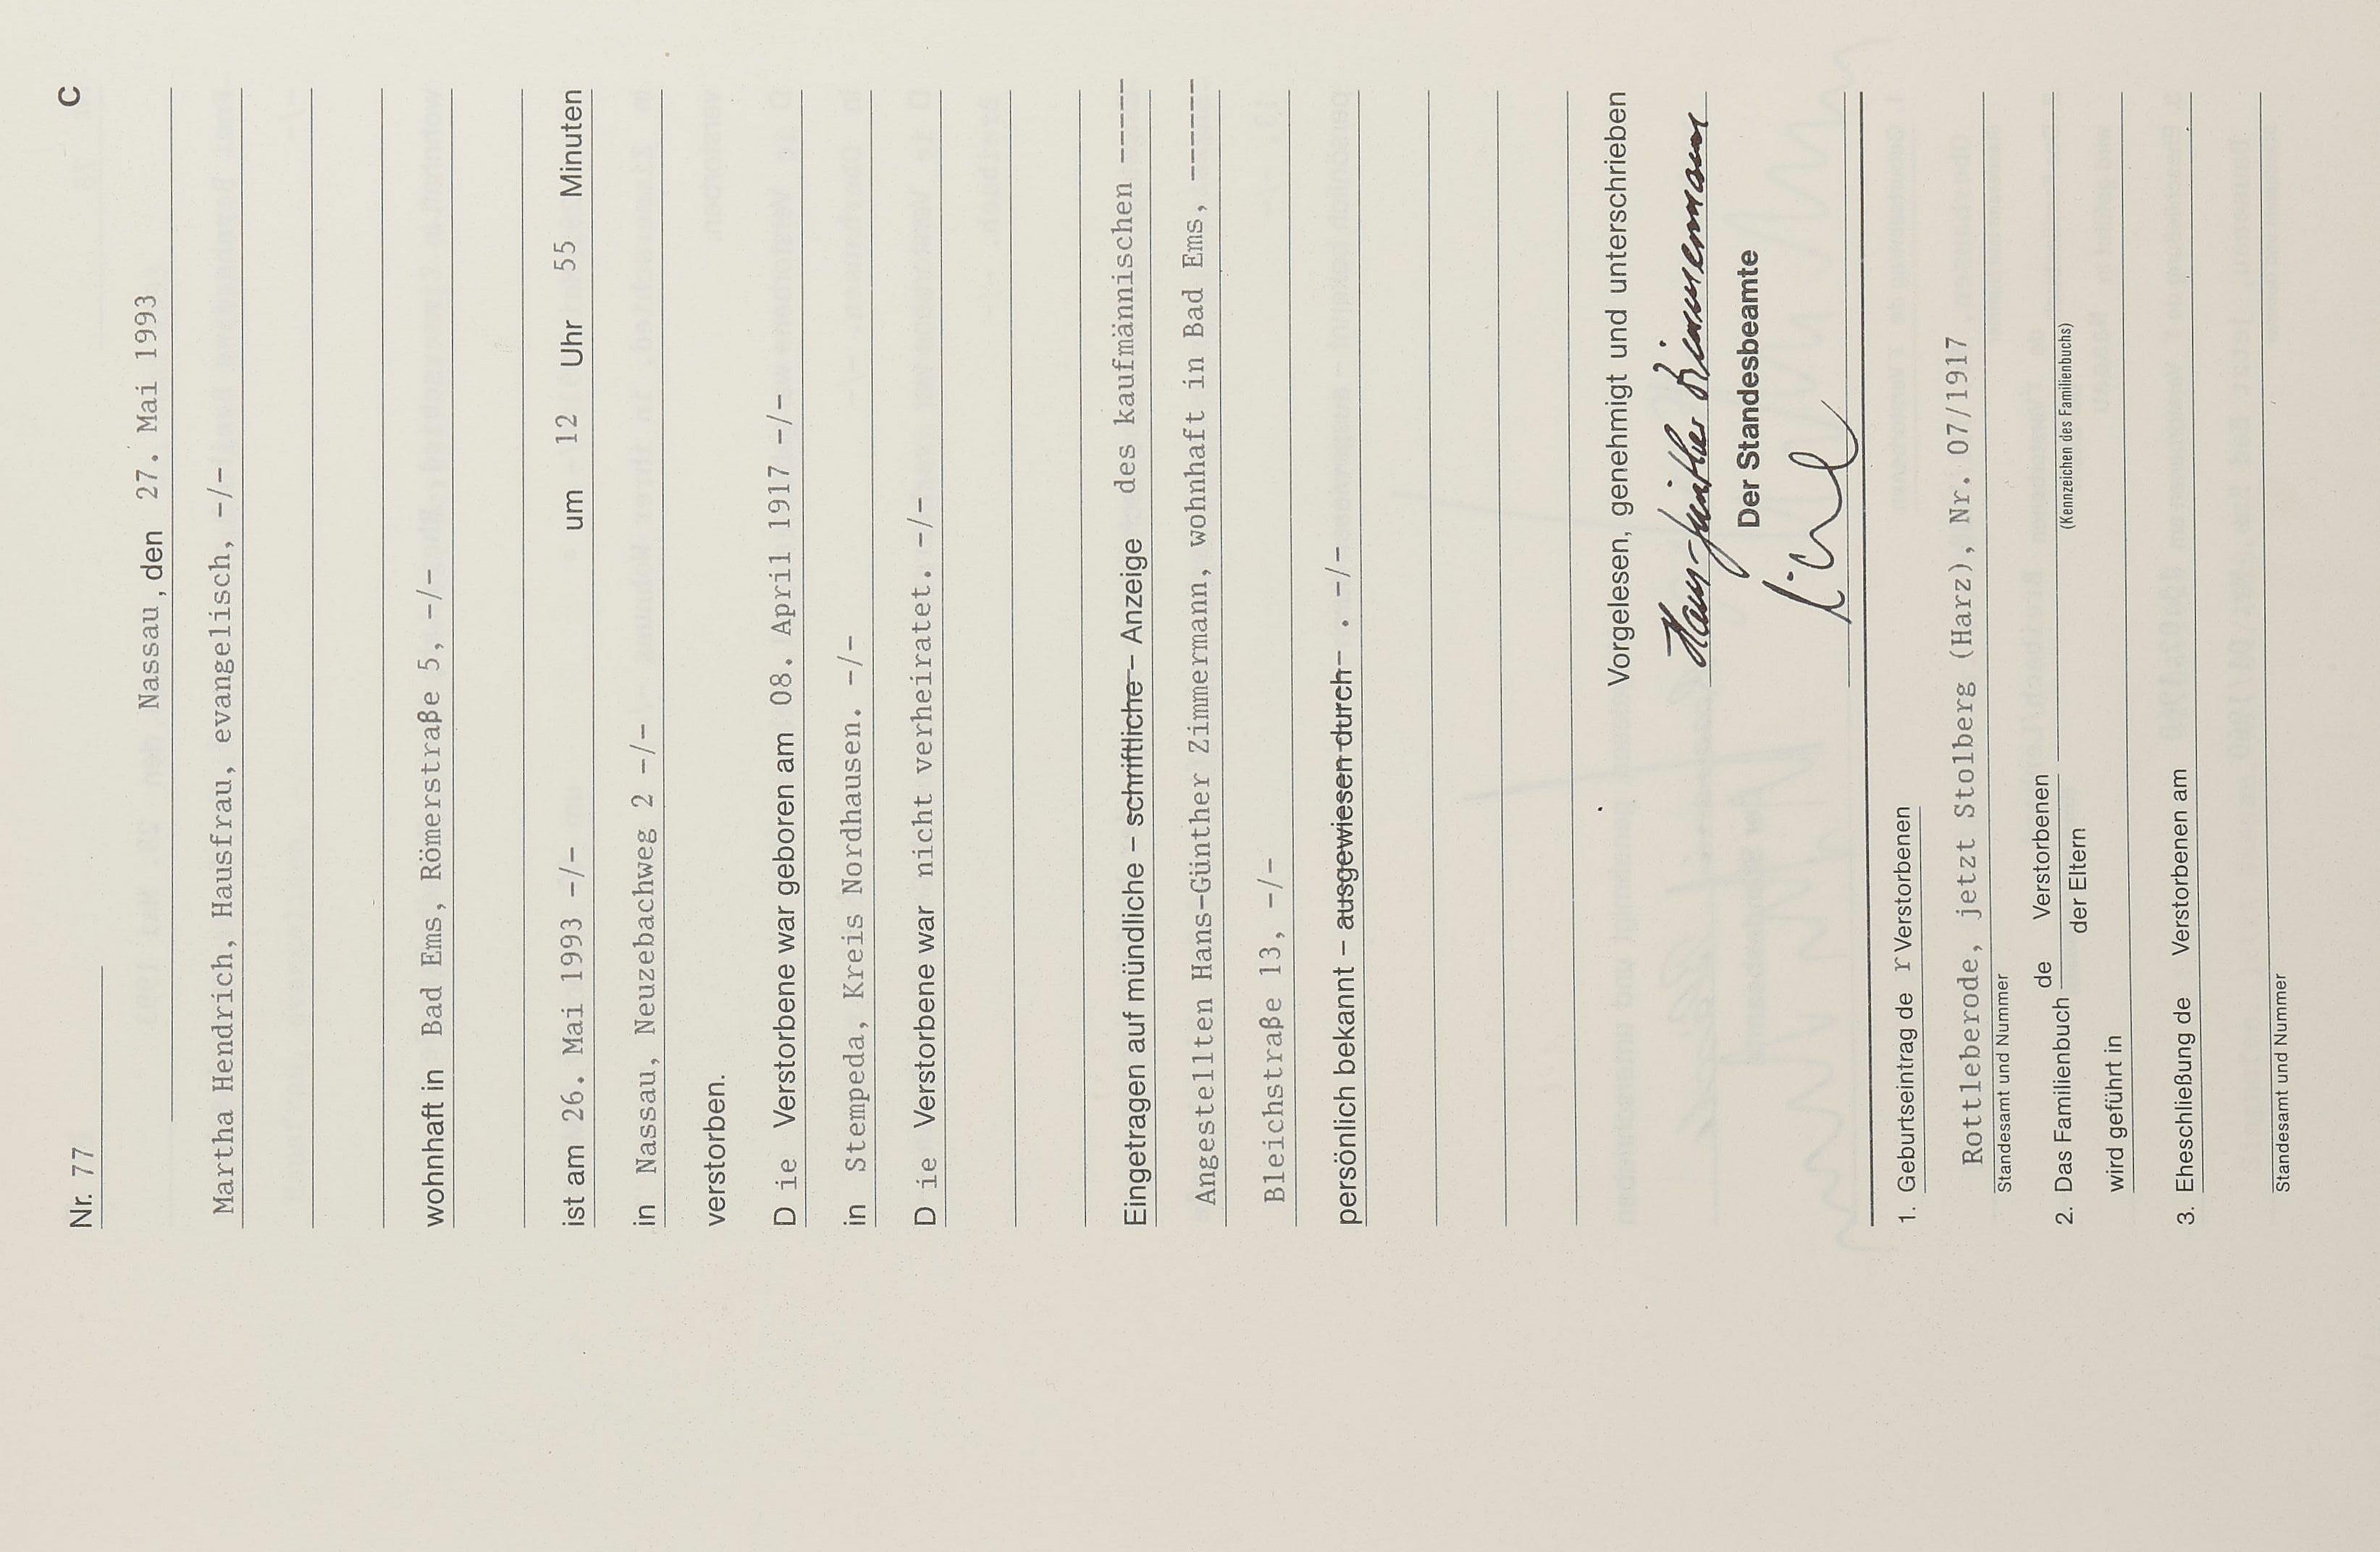 Nr. 77 C
Nassau, den 27. Mai 1993
Martha Hendrich, Hausfrau, evangelisch, -/-
wohnhaft in Bad Ems, Römerstraße 5, -/-
ist am 26. Mai 1993 -/- um 12 Uhr 55 Minuten
in Nassau, Neuzebachweg 2 -/-
verstorben.
D ie Verstorbene war geboren am 08. April 1917 -/-
in Stempeda, Kreis Nordhausen. -/-
D ie Verstorbene war nicht verheiratet. -/-
Eingetragen auf mündliche – schriftliche – Anzeige des kaufmännischen -----
Angestellten Hans-Günther Zimmermann, wohnhaft in Bad Ems, ------
Bleichstraße 13, -/-
persönlich bekannt – ausgewiesen durch – . -/-
Vorgelesen, genehmigt und unterschrieben
Hans-Günther Zimmermann
Der Standesbeamte
1. Geburtseintrag de r Verstorbenen
Rottleberode, jetzt Stolberg (Harz), Nr. 07/1917
Standesamt und Nummer
2. Das Familienbuch de Verstorbenen
der Eltern
(Kennzeichen des Familienbuchs)
wird geführt in
3. Eheschließung de Verstorbenen am
Standesamt und Nummer